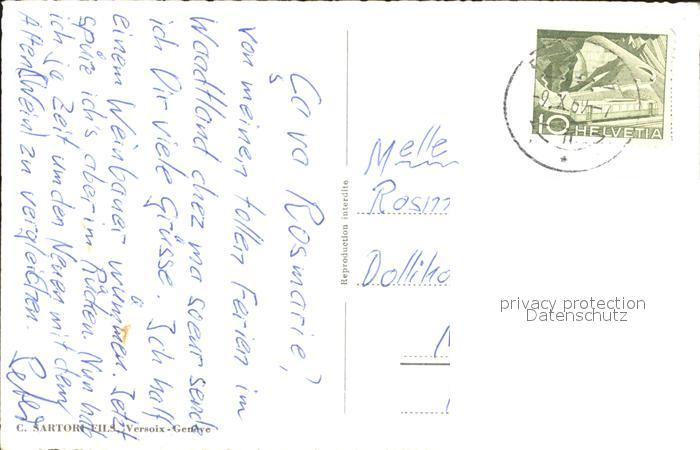 Ça va Rosmarie?
Von meinen tollen Ferien im
Waadtland chez ma soeur send
ich Dir viele Grüsse. Ich half
einem Weinbauer wümmen. Jetzt
spür ich's aber im Rücken. Nun hab
ich ja Zeit um den Neuen mit dem
Alten (Wein) zu vergleichen.
C. SARTORI FILS, Versoix-Genève
Reproduction interdite
Melle
10 HELVETIA
privacy protection
Datenschutz